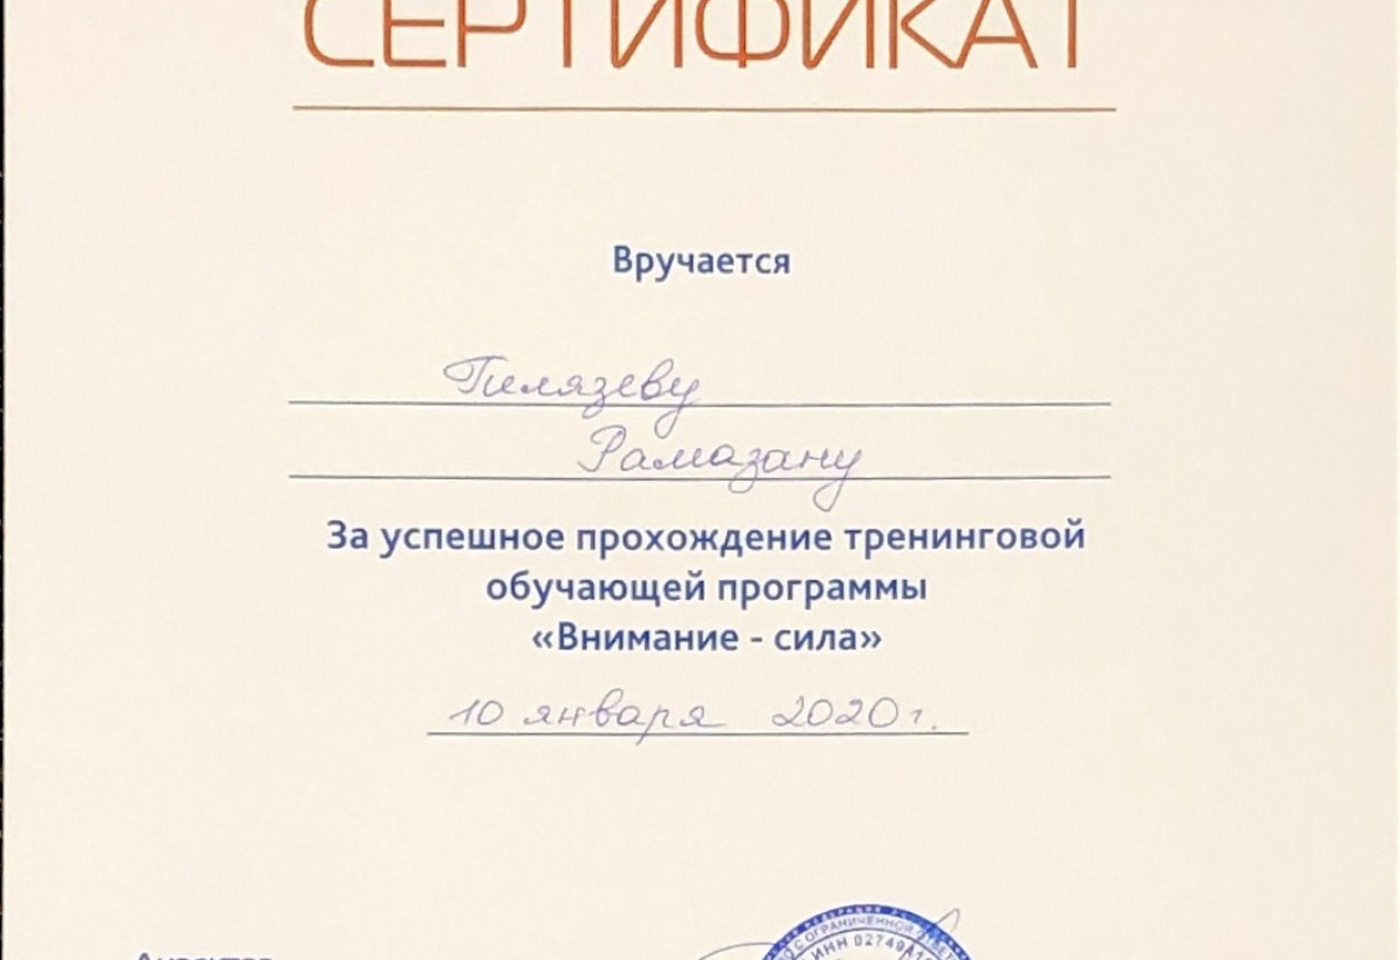 СЕРТИФИКАТ
Вручается
Гилязеву
Рамазану
За успешное прохождение тренинговой
обучающей программы
«Внимание - сила»
10 января 2020 г.
Директор
С ОГРАНИЧЕННОЙ
ИНН